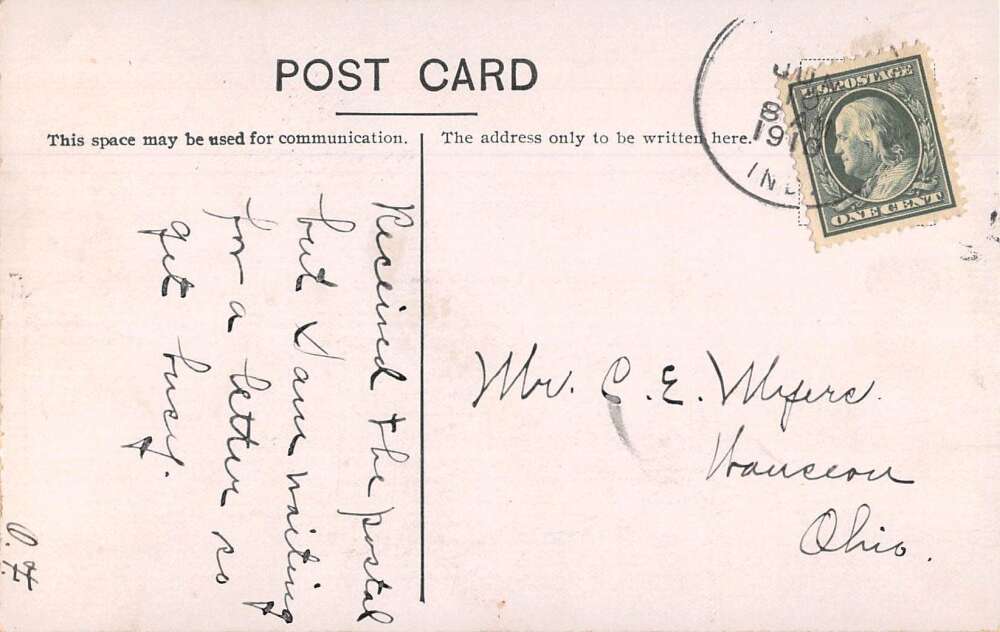 POST CARD
This space may be used for communication.
The address only to be written here.
8
1910
IND
U.S. POSTAGE
ONE CENT
Received the postal
but I am waiting
for a letter so
get busy.
Mr. C. E. Myers.
Wauseon
Ohio.